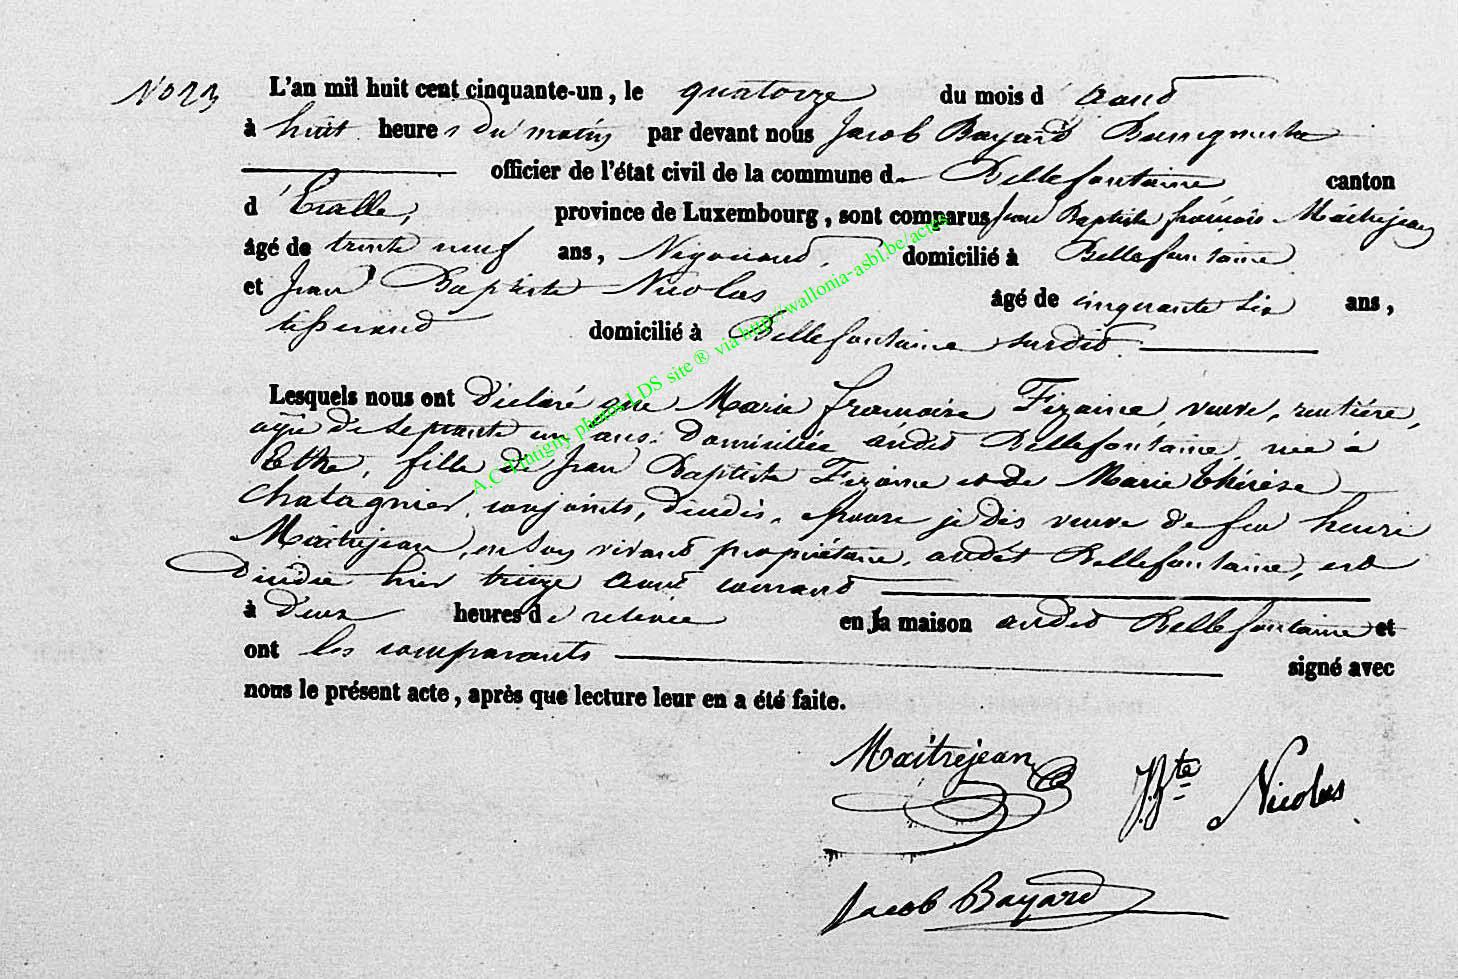 No 23 L'an mil huit cent cinquante-un, le quatorze du mois d'aout
à huit heures du matin par devant nous Jacob Bayard Bourgmestre
officier de l'état civil de la commune de Bellefontaine canton
d'Etalle, province de Luxembourg, sont comparus Jean Baptiste françois Maitrejean
âgé de trente neuf ans, Négociant, domicilié à Bellefontaine
et Jean Baptiste Nicolas âgé de cinquante six ans,
tisserand domicilié à Bellefontaine surdit.
Lesquels nous ont déclaré que Marie françoise Fizaine, veuve, rentière,
agée de septante un ans, domiciliée audit Bellefontaine, née à
Ethe, fille de Jean Baptiste Fizaine et de Marie thérèse
Chatagnier, conjoints, décédés, epouse je dis veuve de feu henri
Maitrejean, en son vivant propriétaire, audit Bellefontaine, est
décédée hier treize aout courant
à deux heures de relevée en la maison audit Bellefontaine et
ont les comparants signé avec
nous le présent acte, après que lecture leur en a été faite.
Maitrejean J. Bte Nicolas
Jacob Bayard
A.C. Tintigny photos LDS site ® via http://wallonia-asbl.be/actes